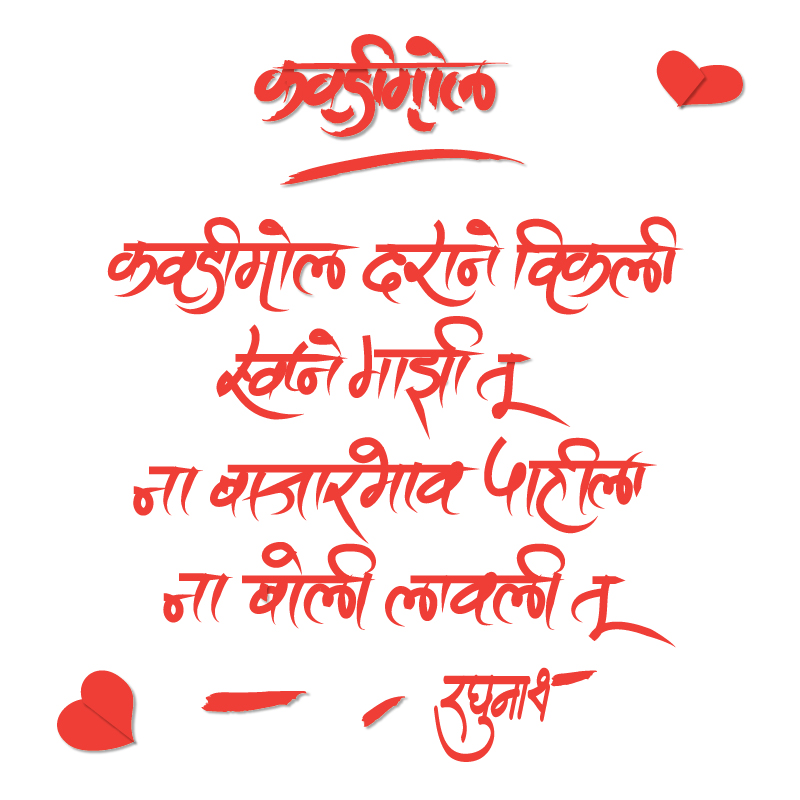 कवडीमोल
कवडीमोल दराने विकली
स्वप्ने माझी तू
ना बाजारभाव पाहीला
ना बोली लावली तू
रघुनाथ